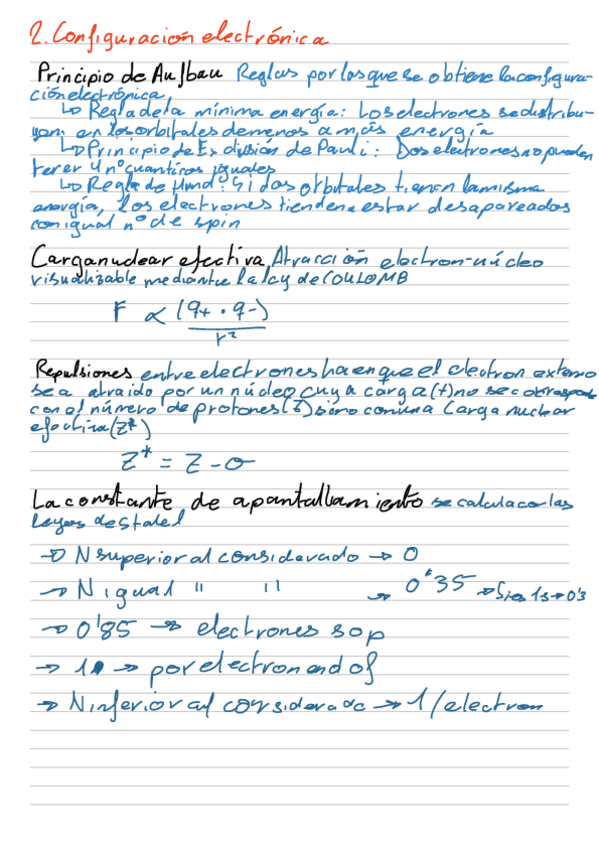 2. Configuración electrónica
Principio de Aufbau Reglas por las que se obtiene la configura-
ción electrónica
↳ Regla de la mínima energía: Los electrones se distribu-
yen en los orbitales de menos a más energía
↳ Principio de Exclusión de Pauli: Dos electrones no pueden
tener 4 nº cuanticos iguales
↳ Regla de Hund: Si dos orbitales tienen la misma
energía, los electrones tienden a estar desapareados
con igual nº de spin
Carga nuclear efectiva Atracción electron-núcleo
visualizable mediante la ley de COULOMB
F ∝ (q+ · q-)
r²
Repulsiones entre electrones hacen que el electron externo
sea atraido por un núcleo cuya carga (+) no se corresponde
con el número de protones (Z) sino con una Carga nuclear
efectiva (Z*)
Z* = Z - σ
La constante de apantallamiento se calcula con las
leyes de Slater
→ N superior al considerado → 0
→ N igual " " → 0'35 → Si es 1s → 0'3
→ 0'85 → electrones s o p
→ 1 → por electron en d o f
→ N inferior al considerado → 1/electron